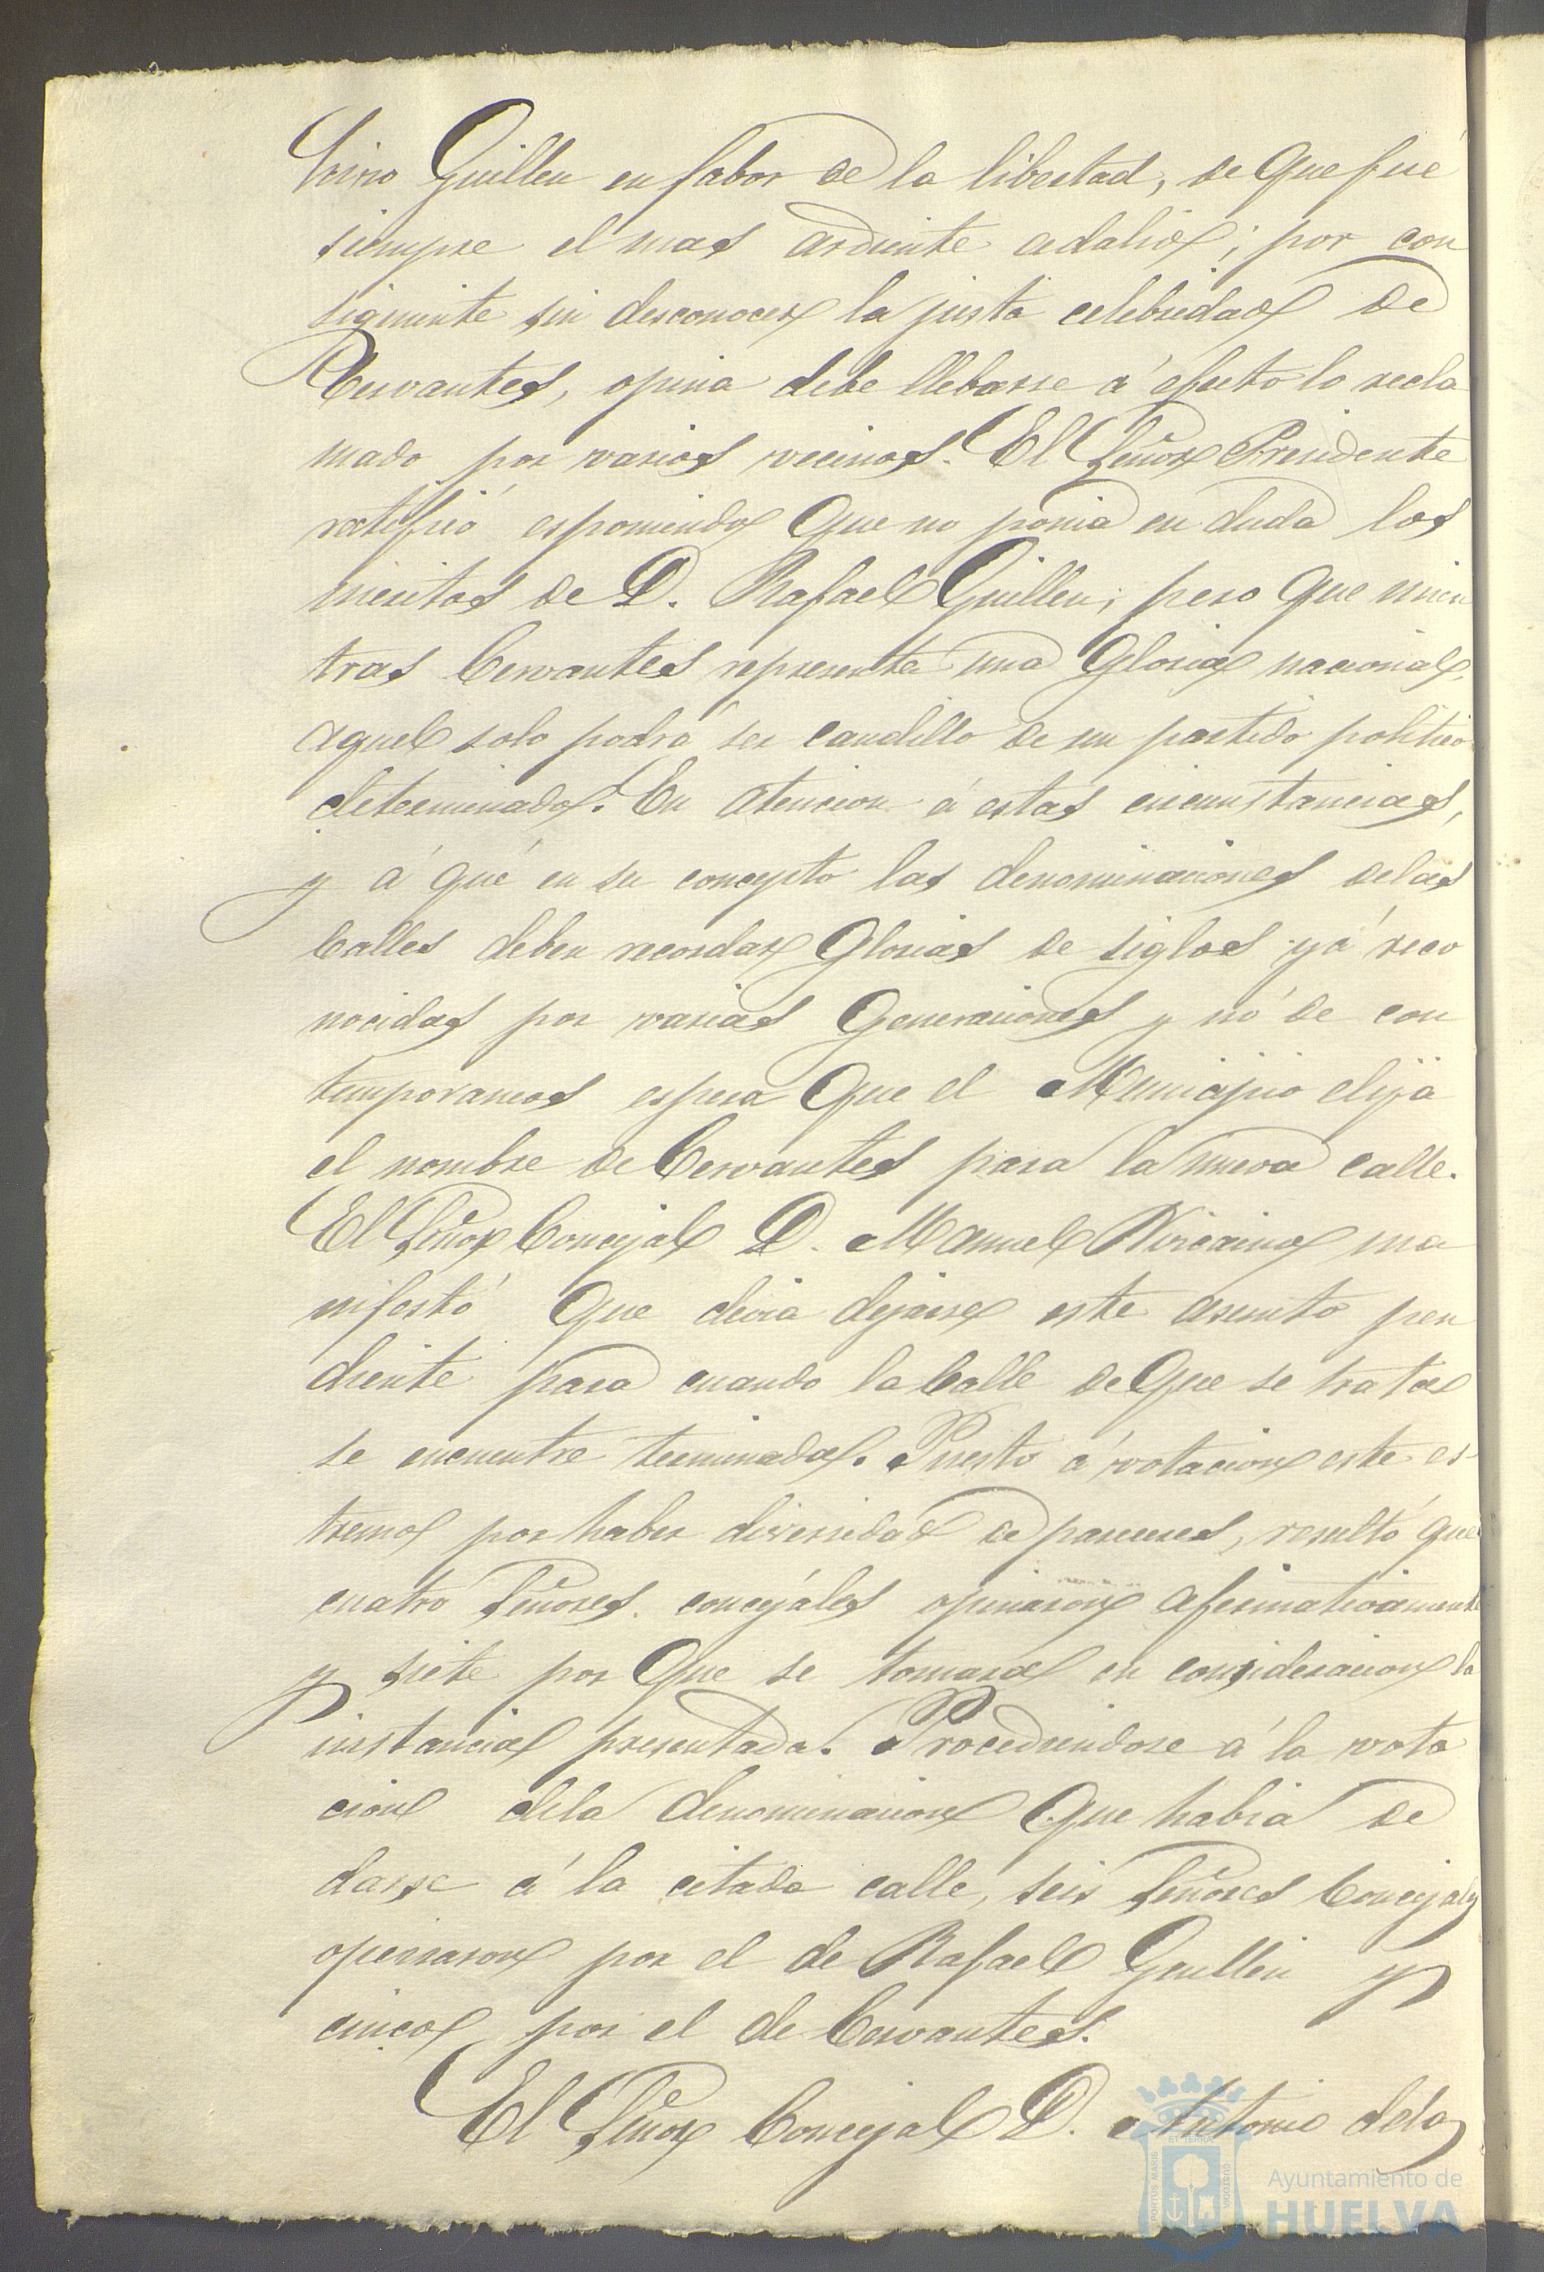 Guillen en fabor de la libertad, de que fué
siempre el mas ardiente adalid; por con
siguiente sin desconocer la justa celebridad de
Cervantes, opina debe llebarse á efecto lo recla
mado por varios vecinos. El Señor Presidente
ratificó esponiendo que no ponia en duda los
meritos de D. Rafael Guillen; pero que mien
tras Cervantes representa una Gloria nacional,
aquel solo podrá ser caudillo de un partido politico
determinado. En atencion á estas circunstancias,
y á qué en su concepto las denominaciones delas
Calles deben recordar Glorias de siglos yá reco
nocidas por varias Generaciones y nó de con
temporaneos espera que el Municipio elija
el nombre de Cervantes para la nueva calle.
El Señor Concejal D. Manuel Vizcaino ma
nifestó que devia dejarse este asunto pen
diente para cuando la Calle de que se trata
se encuentre terminada. Puesto á votacion este es-
tremo por haber diversidad de pareceres, resultó que
cuatro Señores concejales opinaron afirmativamente
y siete por que se tomara en consideracion la
instancia presentada. Procediendose á la vota
cion dela denominacion que habia de
darse á la citada calle, seis Señores Concejales
opinaron por el de Rafael Guillen y
cinco por el de Cervantes.
El Señor Concejal D. Antonio dela
Ayuntamiento de
HUELVA
PORTUS MARIS
ET TERRAE
CUSTODIA